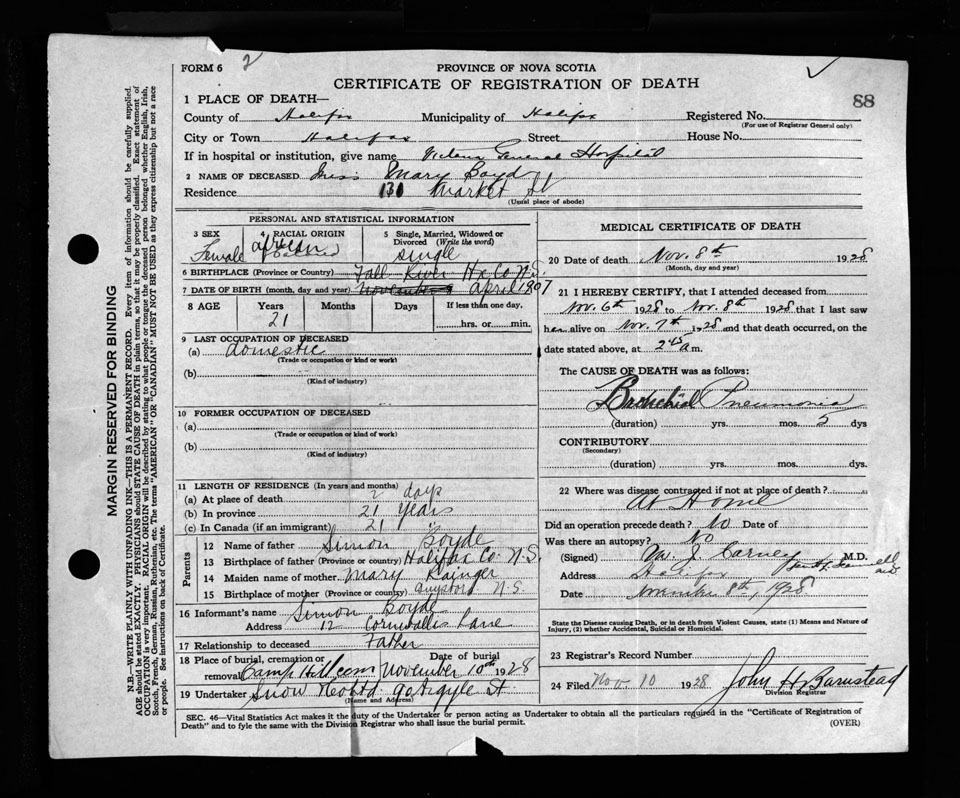 FORM 6
2
PROVINCE OF NOVA SCOTIA
CERTIFICATE OF REGISTRATION OF DEATH
88
1 PLACE OF DEATH—
County of Halifax Municipality of Halifax Registered No.
(For use of Registrar General only)
City or Town Halifax Street House No.
If in hospital or institution, give name Victoria General Hospital
2 NAME OF DECEASED Miss Mary Boyd
Residence 131 Market St
(Usual place of abode)
PERSONAL AND STATISTICAL INFORMATION
3 SEX
Female
4 RACIAL ORIGIN
african
5 Single, Married, Widowed or Divorced (Write the word)
Single
6 BIRTHPLACE (Province or Country) Fall River Hx Co N.S.
7 DATE OF BIRTH (month, day and year) November april 1907
8 AGE Years Months Days If less than one day,
21 hrs. or min.
9 LAST OCCUPATION OF DECEASED
(a) domestic
(Trade or occupation or kind or work)
(b)
(Kind of industry)
10 FORMER OCCUPATION OF DECEASED
(a)
(Trade or occupation or kind of work)
(b)
(Kind of industry)
11 LENGTH OF RESIDENCE (In years and months)
(a) At place of death 2 days
(b) In province 21 years
(c) In Canada (if an immigrant) 21 "
Parents
12 Name of father Simon Boyde
13 Birthplace of father (Province or country) Halifax Co. N.S.
14 Maiden name of mother Mary
15 Birthplace of mother (Province or country) N.S.
16 Informant's name Simon Boyde
Address 12 Cornwallis Lane
17 Relationship to deceased Father
18 Place of burial, cremation or removal Camp Hill cem Date of burial November 10th 1928
19 Undertaker Snow Argyle St.
(Name and Address)
MEDICAL CERTIFICATE OF DEATH
20 Date of death Nov. 8th 1928
(Month, day and year)
21 I HEREBY CERTIFY, that I attended deceased from
Nov. 6th 1928 to Nov. 8th 1928 that I last saw
her alive on Nov. 7th 1928 and that death occurred, on
date stated above, at 2 45 a m.
The CAUSE OF DEATH was as follows:
Bronchial Pneumonia
(duration) yrs. mos. 5 dys
CONTRIBUTORY
(Secondary)
(duration) yrs. mos. dys.
22 Where was disease contracted if not at place of death?
At Home
Did an operation precede death? No Date of
Was there an autopsy? No
(Signed) Wm. J. Carney M.D.
Address Halifax
Date November 8th, 1928
State the Disease causing Death, or in death from Violent Causes, state (1) Means and Nature of
Injury, (2) whether Accidental, Suicidal or Homicidal.
23 Registrar's Record Number
24 Filed Nov. 10 1928 John H Barnstead
Division Registrar
SEC. 46—Vital Statistics Act makes it the duty of the Undertaker or person acting as Undertaker to obtain all the particulars required in the "Certificate of Registration of
Death" and to fyle the same with the Division Registrar who shall issue the burial permit.
(OVER)
MARGIN RESERVED FOR BINDING
N.B.—WRITE PLAINLY WITH UNFADING INK—THIS IS A PERMANENT RECORD. Every item of information should be carefully supplied.
AGE should be stated EXACTLY. PHYSICIANS should STATE CAUSE OF DEATH in plain terms, so that it may be properly classified. Exact statement of
OCCUPATION is very important. RACIAL ORIGIN will be described by stating to what people or tongue the deceased person belonged whether English, Irish,
Scotch, French, German, Russian, Ruthenian, etc. The terms "AMERICAN" OR "CANADIAN" MUST NOT BE USED as they express citizenship but not a race
or people. See instructions on back of Certificate.